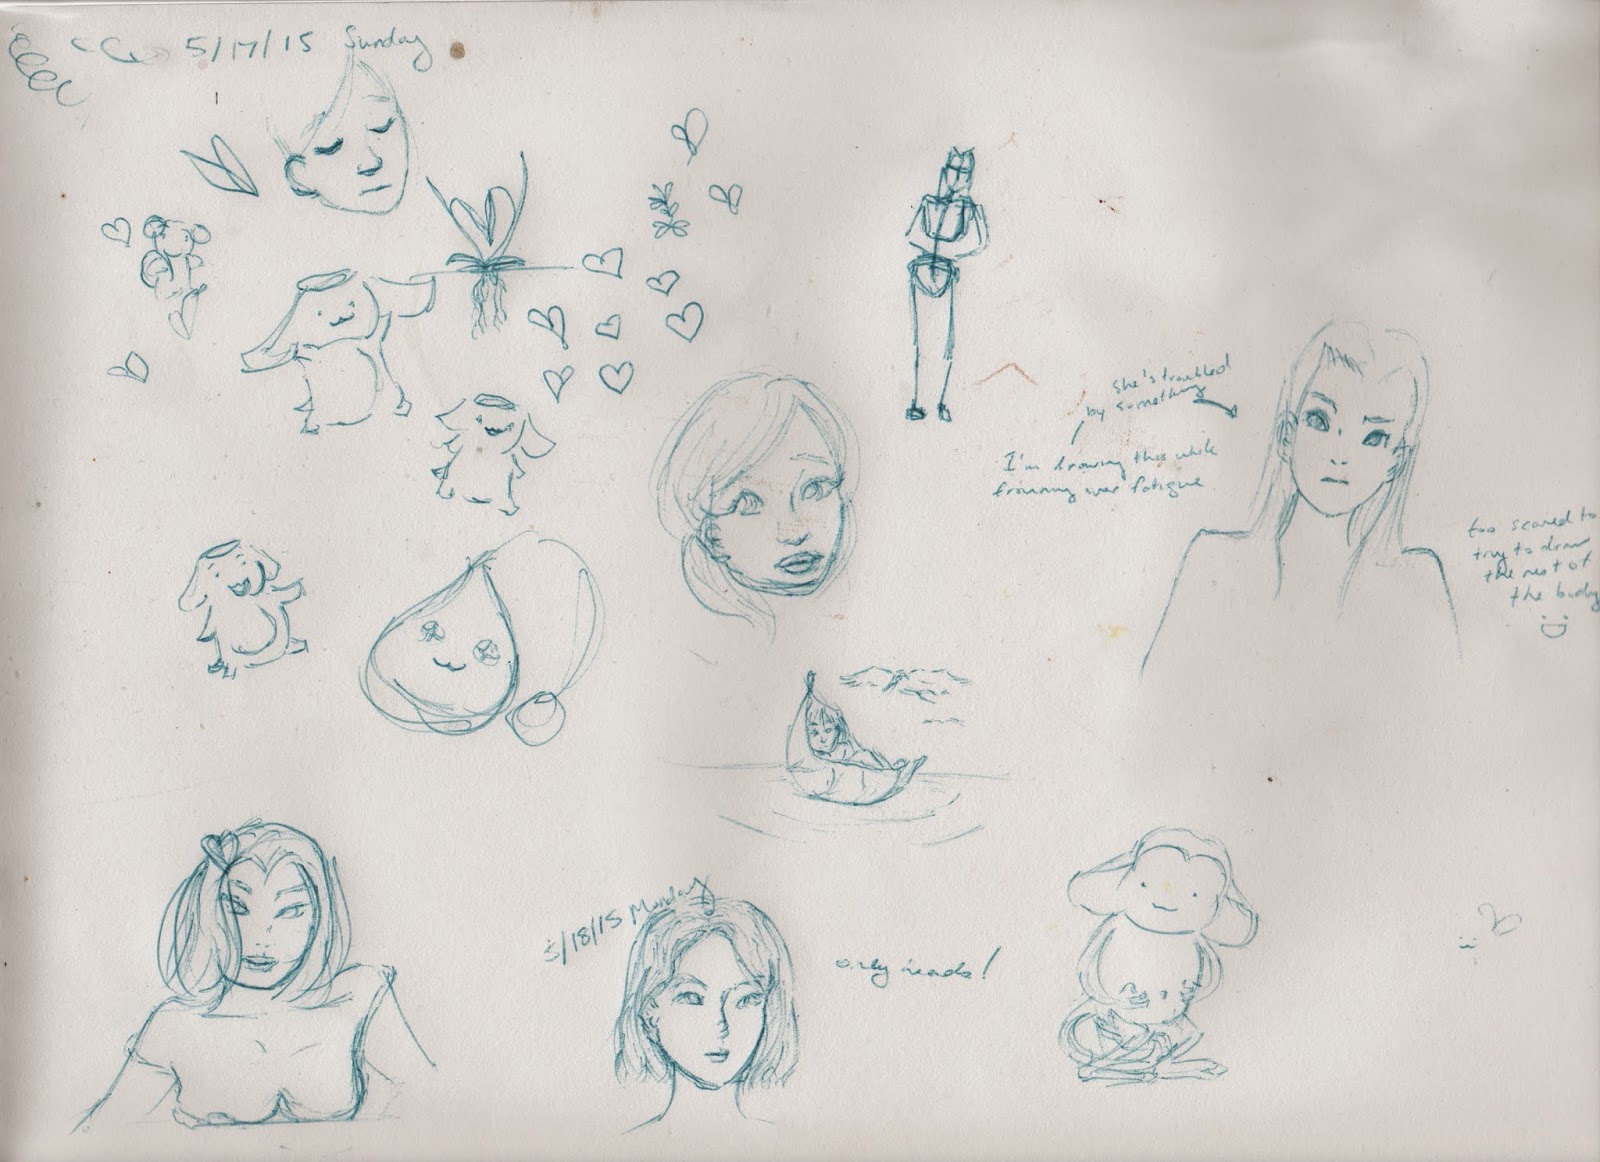 5/17/15 Sunday
She's troubled
by something
I'm drawing this while
frowning over fatigue
too scared to
try to draw
the rest of
the body
:D
5/18/15 Monday
only heads!